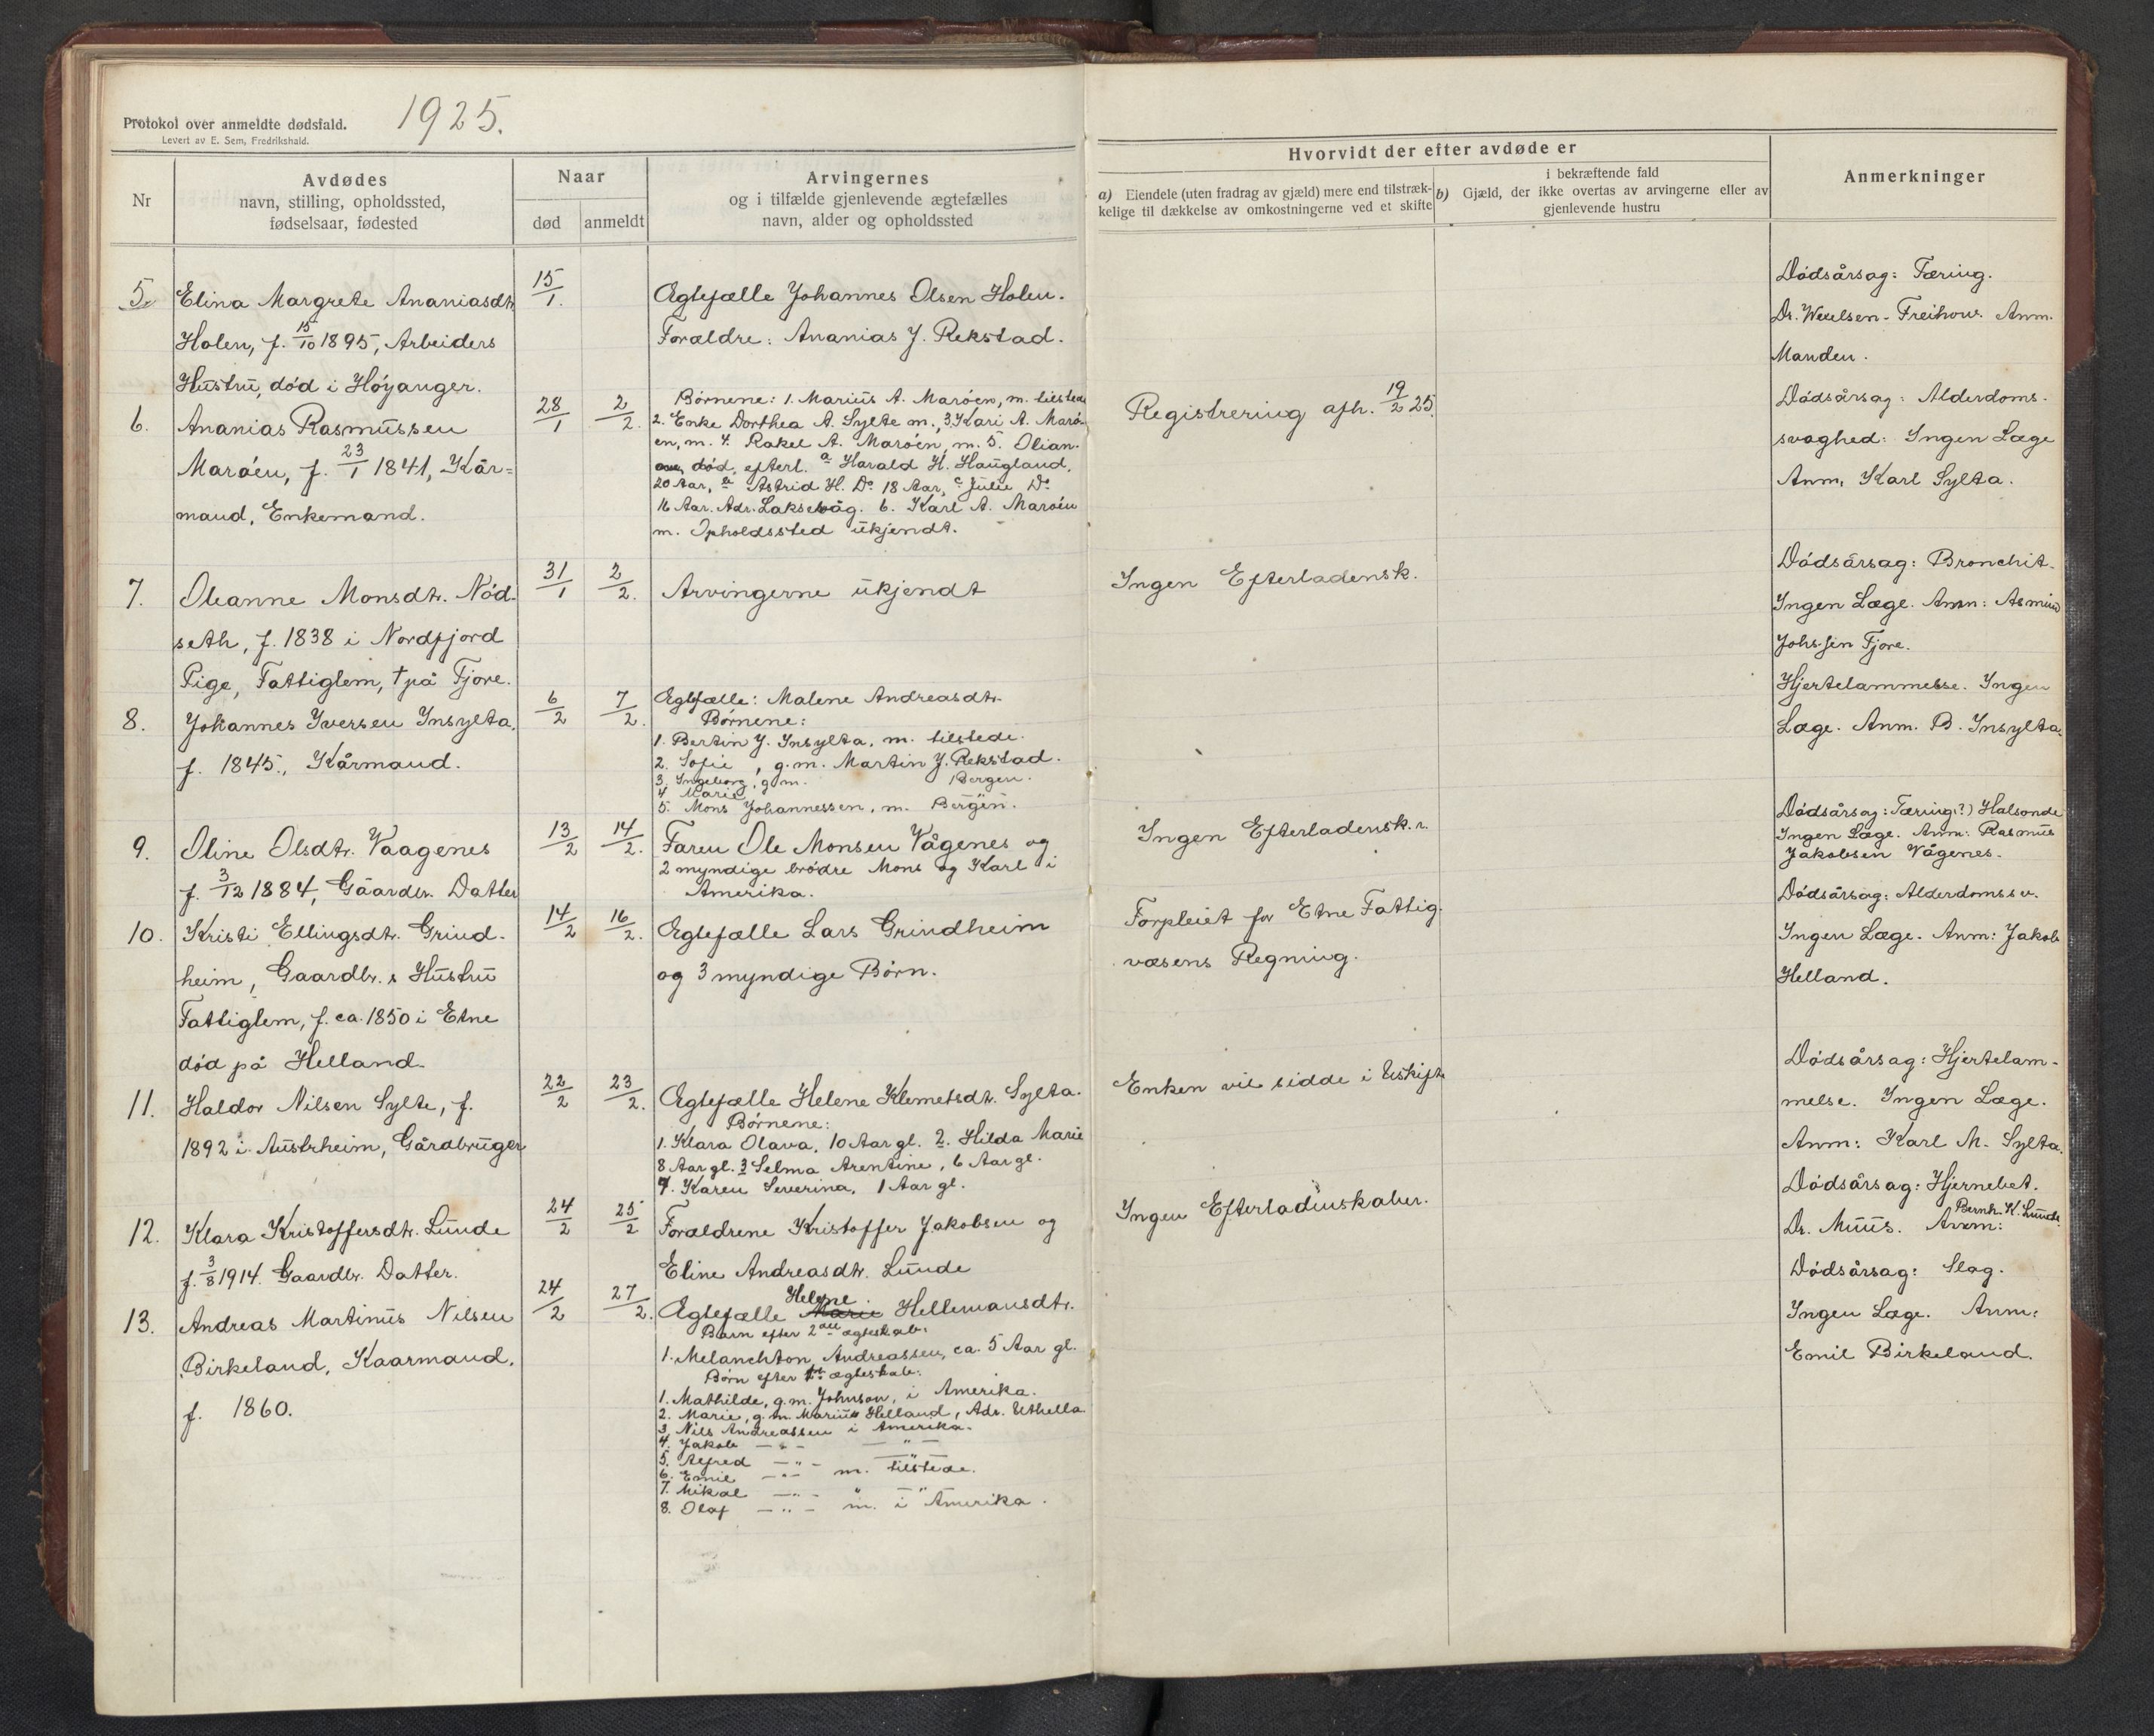 Protokol over anmeldte dødsfald. 1925.
Levert av E. Sem, Fredrikshald.
Nr
Avdødes
navn, stilling, opholdssted,
fødselsaar, fødested
Naar
død anmeldt
Arvingernes
og i tilfælde gjenlevende ægtefælles
navn, alder og opholdssted
Hvorvidt der efter avdøde er
a) Eiendele (uten fradrag av gjæld) mere end tilstræk-
kelige til dækkelse av omkostningerne ved et skifte
i bekræftende fald
b) Gjæld, der ikke overtas av arvingerne eller av
gjenlevende hustru
Anmerkninger
5.
Elina Margrete Ananiasdtr.
Holen, f. 15/10 1895, Arbeiders
Hustru, død i Høyanger.
15/1.
Ægtefælle Johannes Olsen Holen.
Forældre: Ananias J. Rekstad.
Dödsårsag: Tæring.
Dr. - Freihow. Anm.
Manden.
6.
Ananias Rasmussen
Maröen, f. 23/1 1841, Kår=
mand, Enkemand.
28/1 2/2.
Börnene: 1. Marius A. Maröen, m. tilstede
2. Enke Dorthea A. Sylte m., 3. Kari A. Marö-
en, m. 4. Rakel A. Maröen, m. 5. Olian.
död, efterl. a Harald H. Haugland,
20 Aar, b Astrid H. Do 18 Aar, c Julie Do
16 Aar. Adr. Laksevåg. 6. Karl A. Maröen
m. Opholdssted ukjendt.
Registrering afh. 19/2 25.
Dödsårsag: Alderdoms-
svaghed. Ingen Læge
Anm. Karl Sylta.
7.
Oleanne Monsdtr. Nöd-
seth, f. 1838 i Nordfjord
Pige, Fattiglem, † på Fjore.
31/1 2/2.
Arvingerne ukjendt
Ingen Efterladensk.
Dödsårsag: Bronchit.
Ingen Læge. Anm: Asmund
Johs.sen Fjore.
8.
Johannes Iversen Insylta.
f. 1845., Kårmand.
6/2 7/2.
Egtefælle: Malene Andreasdtr.
Börnene:
1. Bertin J. Insylta, m. tilstede.
2. Sofie, g.m. Martin J. Rekstad.
3. Ingeborg, g.m. Bergen.
4 Marie
5. Mons Johannessen, m. Bergen.
Hjertelammelse. Ingen
Læge. Anm. B. Insylta.
9.
Oline Olsdtr. Vaagenes
f. 3/12 1884, Gaardbr. Datter
13/2 14/2.
Faren Ole Monsen Vågenes og
2 myndige brödre Mons og Karl i
Amerika.
Ingen Efterladensk.r.
Dödsårsag: Tæring(?) Halsonde
Ingen Læge. Anm: Rasmus
Jakobsen Vågenes.
10.
Kristi Ellingsdtr. Grind-
heim, Gaardbr.s Hustru
Fattiglem, f. ca. 1850 i Etne
död på Helland.
14/2 16/2.
Ægtefælle Lars Grindheim
og 3 myndige Börn.
Forpleiet for Etne Fattig-
væsens Regning.
Dödsårsag: Alderdomssv.
Ingen Læge. Anm: Jakob
Helland.
11.
Haldor Nilsen Sylte, f.
1892 i Austrheim, Gårdbruger
22/2 23/2.
Ægtefælle Helene Klemetsdtr. Sylta.
Börnene:
1. Klara Olava, 10 Aar gl. 2. Hilda Marie
8 Aar gl. 3 Selma Arentine, 6 Aar gl.
4. Karen Severina, 1 Aar gl.
Enken vil sidde i Uskifte
Dödsårsag: Hjertelam-
melse. Ingen Læge.
Anm: Karl M. Sylta.
12.
Klara Kristoffersdtr. Lunde
f. 3/8 1914. Gaardbr. Datter.
24/2 25/2
Forældrene Kristoffer Jakobsen og
Eline Andreasdtr. Lunde
Ingen Efterladenskaber.
Dödsårsag: Hjernebet.
Dr. Muus. Anm: Bernh. K. Lunde.
13.
Andreas Martinus Nilsen
Birkeland, Kaarmand.
f. 1860.
24/2 27/2.
Ægtefælle Marie Helene Hellemansdtr.
Barn efter 2det ægteskab:
1. Melanchton Andreassen, ca. 5 Aar gl.
Börn efter 1ste ægteskab:
1. Mathilde, g.m. Johnson, i Amerika.
2. Marie, g.m. Marius Helland, Adr. Uthella
3. Nils Andreassen i Amerika.
4. Jakob —"— —"—
5. Alfred —"— —"—
6. Emil —"— m. tilstede.
7. Mikal —"— " —"—
8. Olaf —"— m. i Amerika.
Dödsårsag: Slag.
Ingen Læge. Anm:
Emil Birkeland.